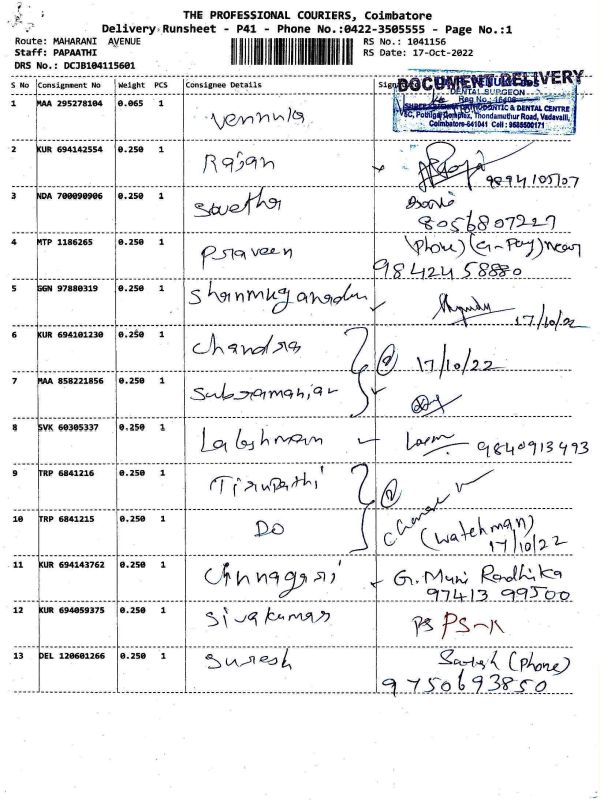 THE PROFESSIONAL COURIERS, Coimbatore
Delivery Runsheet - P41 - Phone No.:0422-3505555 - Page No.:1
Route: MAHARANI AVENUE
RS No.: 1041156
Staff: PAPAATHI
RS Date: 17-Oct-2022
DRS No.: DCJB104115601
S No Consignment No Weight PCS Consignee Details
DOCUMENT DELIVERY
DENTAL SURGEON
Reg No.
& DENTAL CENTRE
Complex, Thondamuthur Road, Vadavalli,
Coimbatore-641041 Cell : 9585500171
1 MAA 295278104 0.065 1 Vennula
2 KUR 694142554 0.250 1 Rajan
9894105707
3 NDA 700090906 0.250 1 Swetha
8056807227
4 MTP 1186265 0.250 1 Praveen (Phone) (G-Pay) near
9842458880
5 GGN 97880319 0.250 1 Shanmuganadan
17/10/22
6 KUR 694101230 0.250 1 Chandra
17/10/22
7 MAA 858221856 0.250 1 Subramanian
8 SVK 60305337 0.250 1 Lakshman Laxm 9840913493
9 TRP 6841216 0.250 1 Tirupathi
10 TRP 6841215 0.250 1 Do
(Watchman)
17/10/22
11 KUR 694143762 0.250 1 Chinnagiri G. Muni Radhika
97413 99500
12 KUR 694059375 0.250 1 Sivakumar PS PS-K
13 DEL 120601266 0.250 1 Suresh Satish (Phone)
9750693850